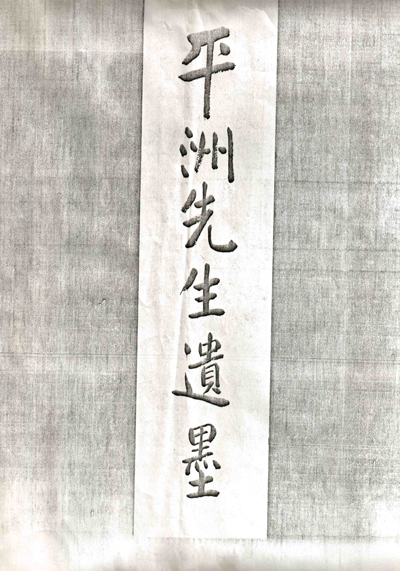 平洲先生遺墨